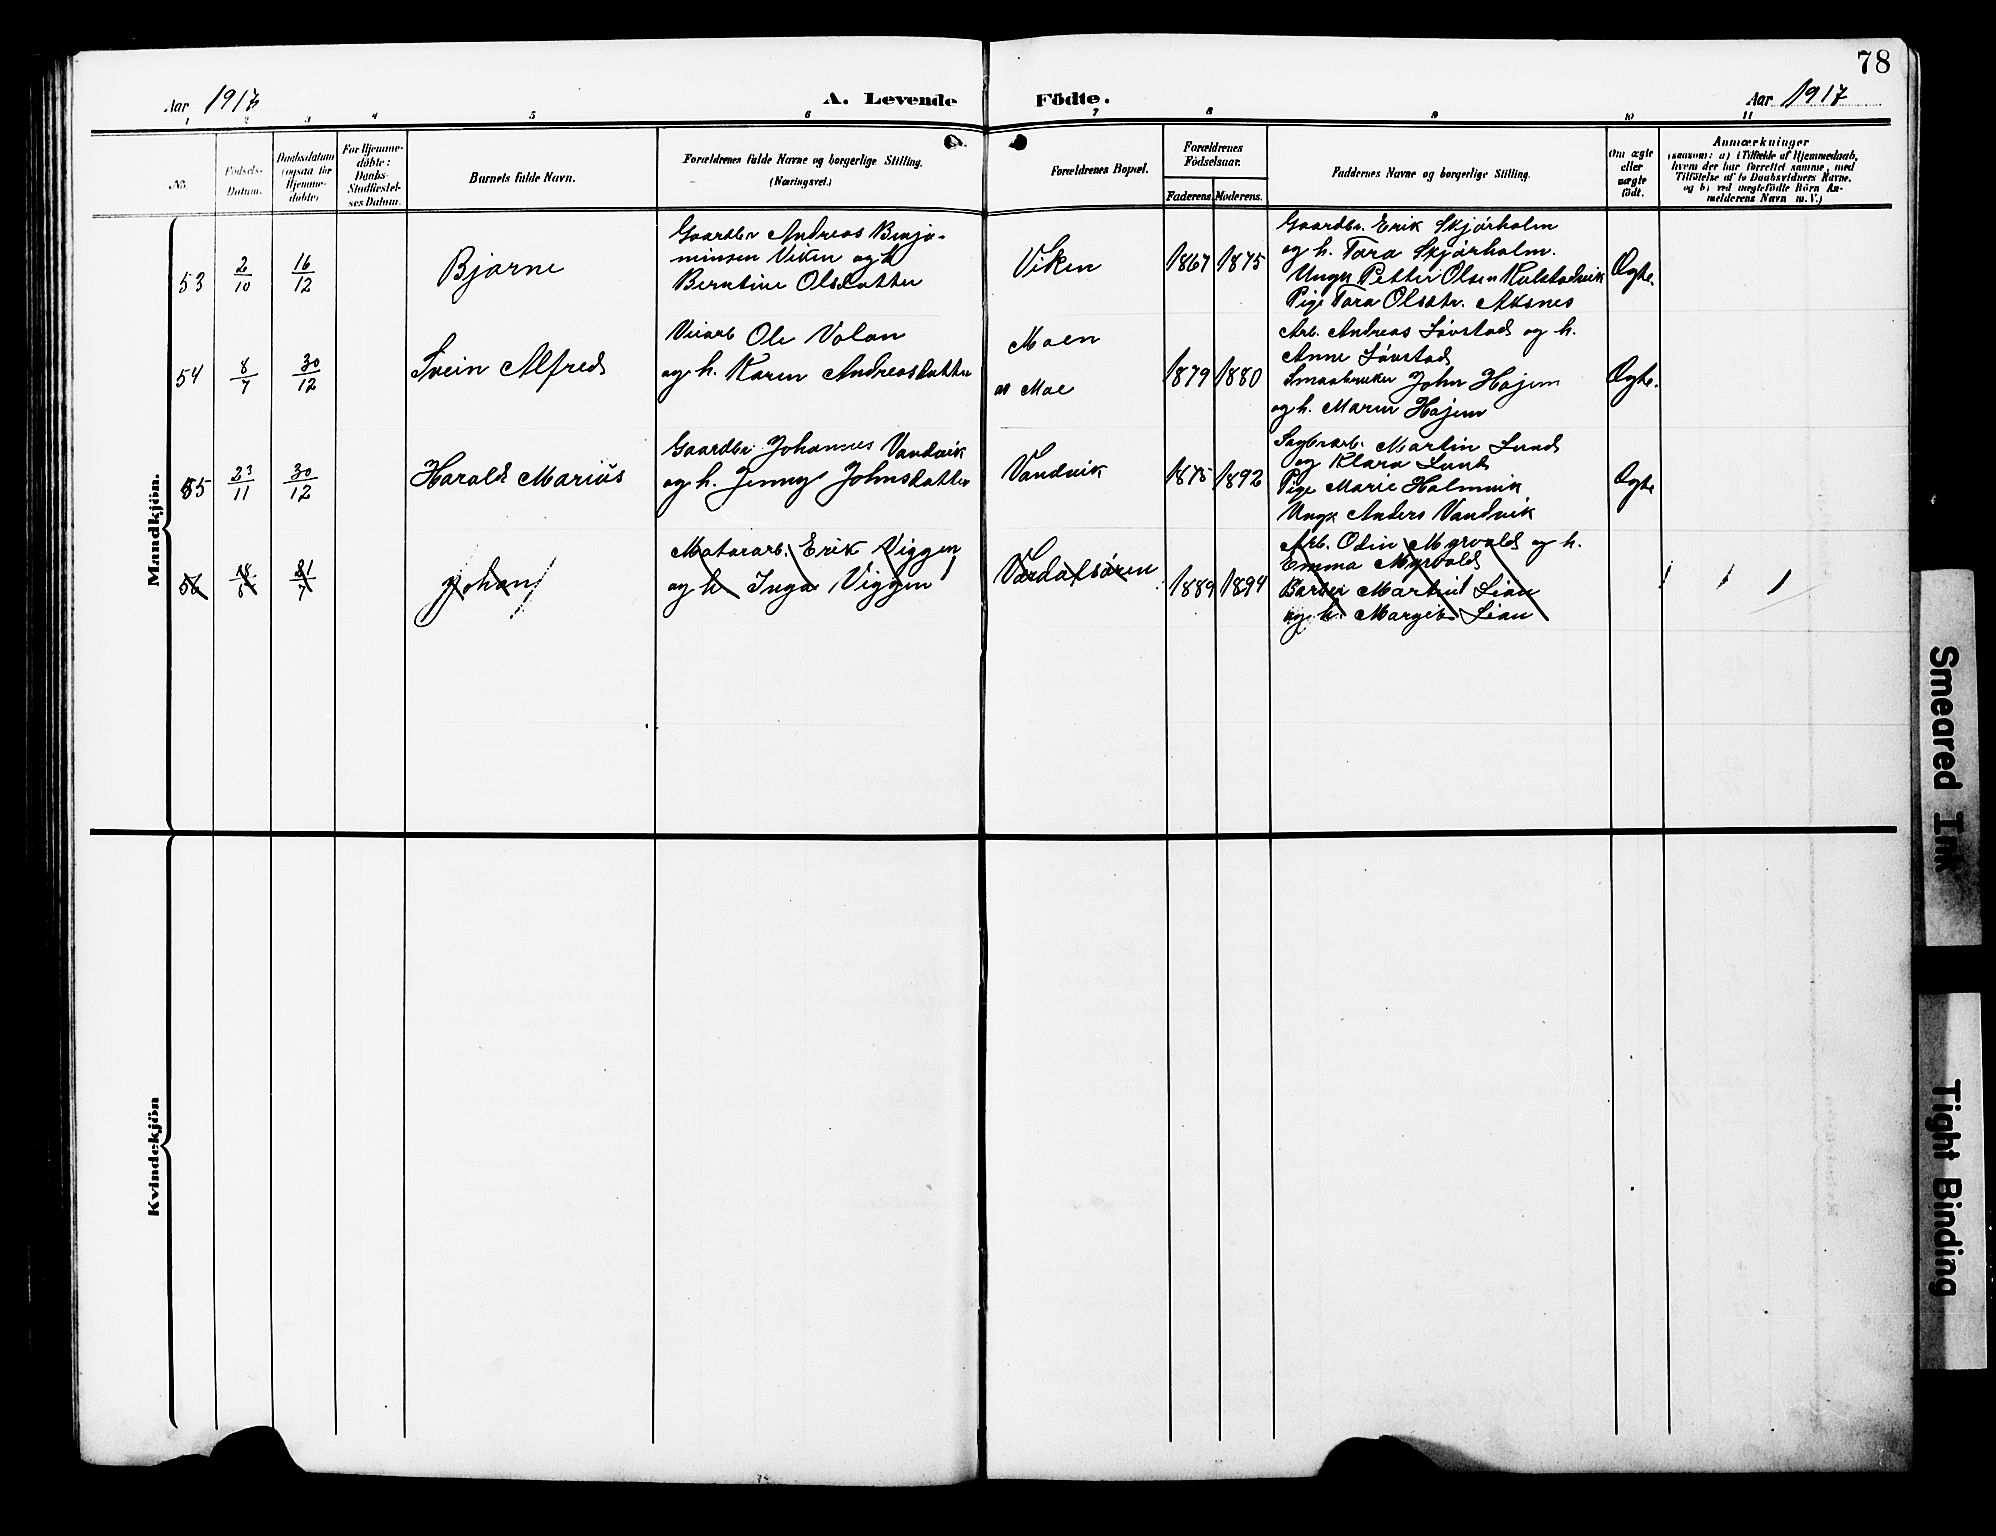 78
Aar 1917
A. Levende Födte.
Aar 1917
1 2 3 4 5 6 7 8 9 10 11
No.
Födsels-
Datum.
Daabsdatum
(ogsaa for
Hjemme-
döbte)
For Hjemme-
döbte:
Daabs-
Stadfæstel-
ses Datum.
Barnets fulde Navn.
Forældrenes fulde Navne og borgerlige Stilling.
(Næringsvei.)
Forældrenes Bopæl.
Forældrenes
Födselsaar.
Faderens. Moderens.
Faddernes Navne og borgerlige Stilling.
Om ægte
eller
uægte
födt.
Anmærkninger
(saasom: a) i Tilfælde af Hjemmedaab,
hvem der har forrettet samme, med
Tilföielse af to Daabsvidners Navne,
og b) ved uægtefödte Börn An-
melderens Navn m. V.)
Mandkjön.
53
2/10
16/12
Bjarne
Gaardbr Andreas Benja-
minsen Viken og h
Berntine Olsdatter
Viken
1867 1875
Gaardbr. Erik Skjörholm
og h. Tora Skjörholm.
Ungk Petter Olsen Kolstadvik
Pige Tora Olsdtr. Aksnes
Ægte.
54
8/7
30/12
Svein Alfred
Veiarb Ole Volan
og h. Karen Andreasdatter
Moen
at Moe
1879 1880
Arb. Andreas Lövstad og h.
Anne Lövstad
Smaabruker John Hojem
og h. Maren Hojem
Ægte.
55
23/11
30/12
Harald Marius
Gaardbr Johannes Vandvik
og h. Jenny Johnsdatter
Vandvik
1875 1892
Sagbrarb. Martin Lund
og Klara Lund
Pige Marie Holmvik
Ungk Anders Vandvik
Ægte
56
21/7
Johan
Motorarb. Erik Viggen
og h Inga Viggen
Værdalsören
1889 1894
Arb. Odin Myrvold og h.
Emma Myrvold
Barber Martin Lian
og h. Margit Lian
Kvindekjön
Smeared Ink
Tight Binding